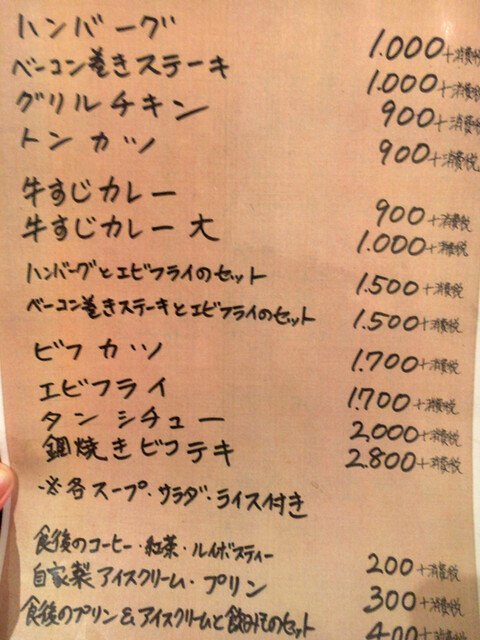 ハンバーグ 1.000+消費税
ベーコン巻きステーキ 1.000+消費税
グリルチキン 900+消費税
トンカツ 900+消費税
牛すじカレー 900+消費税
牛すじカレー大 1.000+消費税
ハンバーグとエビフライのセット 1.500+消費税
ベーコン巻きステーキとエビフライのセット 1.500+消費税
ビフカツ 1.700+消費税
エビフライ 1.700+消費税
タンシチュー 2.000+消費税
鍋焼きビフテキ 2.800+消費税
※各スープ・サラダ・ライス付き
食後のコーヒー・紅茶・ルイボスティー 200+消費税
自家製アイスクリーム・プリン 300+消費税
食後のプリン&アイスクリームと飲みものセット 400+消費税